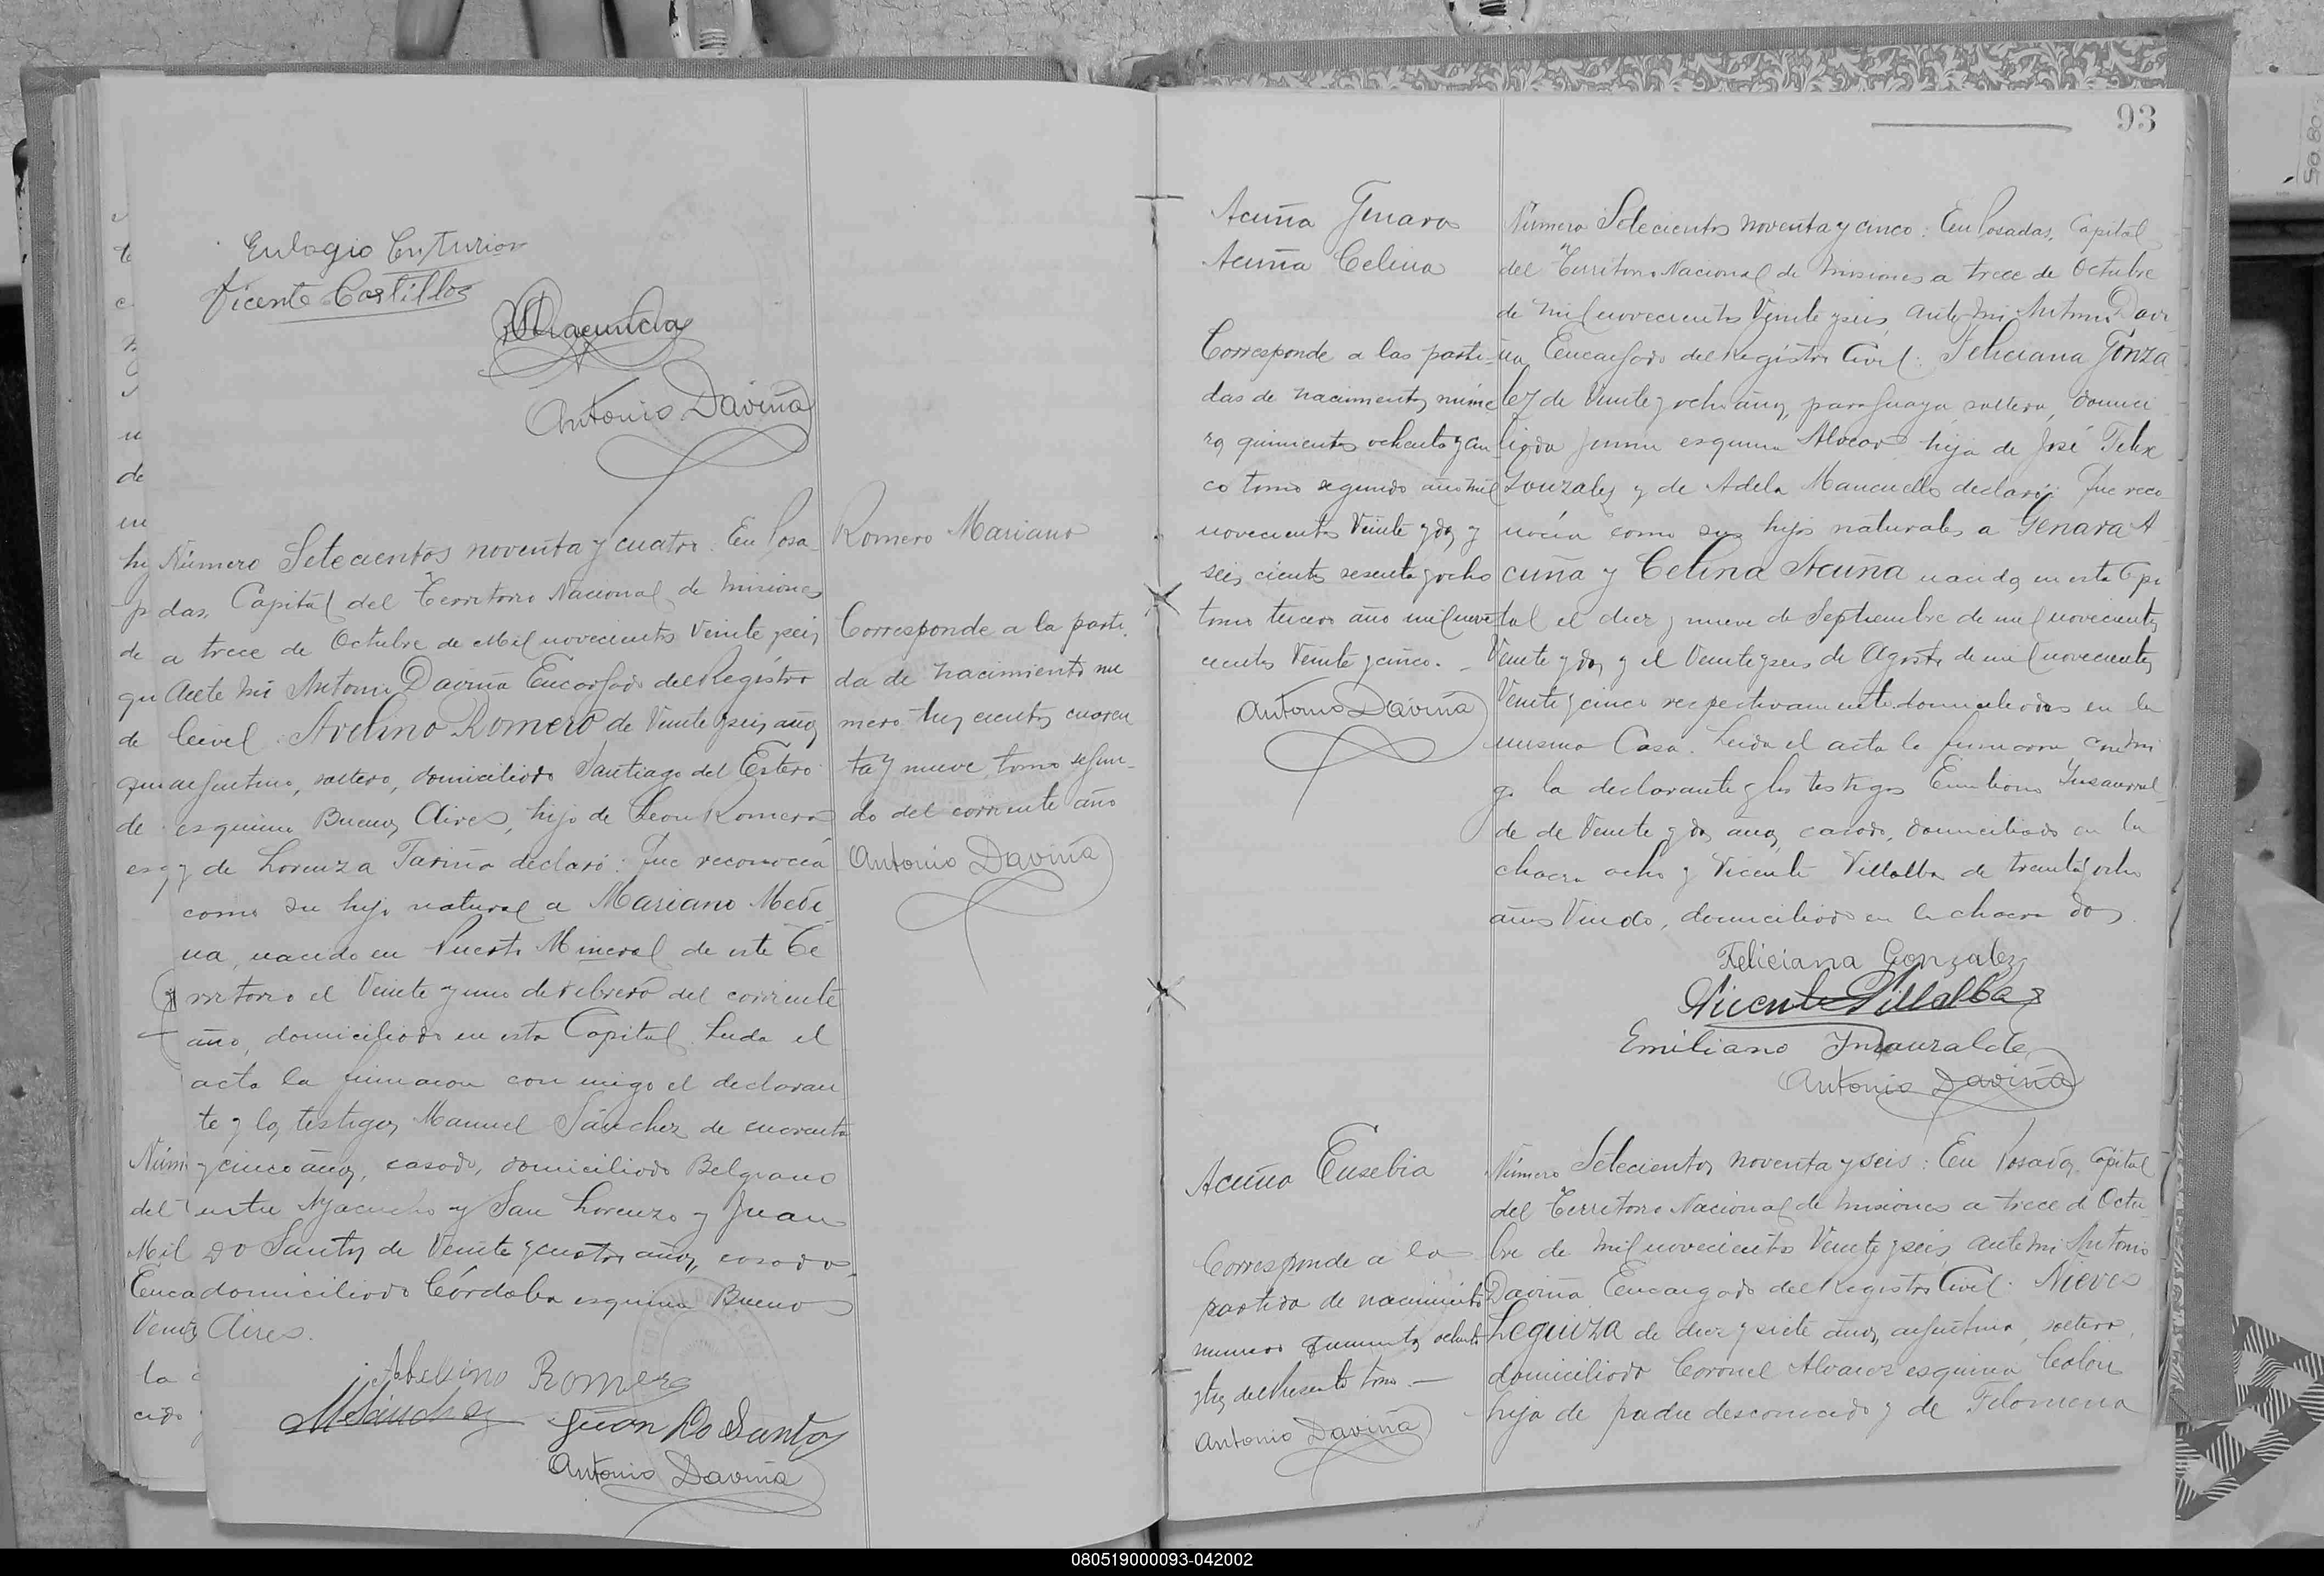 Eulogio Centurion
Vicente Castillos
Antonio Daviña
Número Setecientos noventa y cuatro. En Posa-
das, Capital del Territorio Nacional de Misiones
a trece de Octubre de Mil novecientos Veinte y seis,
Ante mi Antonio Daviña Encargado del Registro
Civil: Avelino Romero de Veinte y seis años
argentino, soltero, domiciliado Santiago del Estero
esquina Buenos Aires, hijo de Leon Romero
y de Lorenza declaró: Que reconocia
como su hijo natural a Mariano Medi-
na, nacido en Puerto Mineral de este Te
rritorio el Veinte y uno de Febrero del corriente
año, domiciliado en esta Capital. Leida el
acta la firmaron con migo el declaran
te y los testigos Manuel Sánchez de cuarenta
y cinco años, casado, domiciliado Belgrano
entre Ayacucho y San Lorenzo y Juan
Do Santos de Veinte y cuatro años, casado
domiciliado Córdoba esquina Buenos
Aires.
Abelino Romero
MSanchez
Juan Do Santos
Antonio Daviña
Romero Mariano
Corresponde a la parti-
da de nacimiento nu
mero tres cientos cuaren
ta y nueve, tomo segun-
do del corriente año
Antonio Daviña
93
Acuña Genara
Acuña Celina
Corresponde a las parti-
das de nacimientos núme
ros quinientos ochenta y cin
co tomo segundo año mil
novecientos Veinte y dos y
seis cientos sesenta y ocho
tomo tercero año mil nove
cientos Veinte y cinco. -
Antonio Daviña
Número Setecientos noventa y cinco: En Posadas, Capital
del Territorio Nacional de Misiones a trece de Octubre
de mil novecientos Veinte y seis, ante mi Antonio Davi-
ña, Encargado del Registro Civil: Feliciana Gonza
lez de Veinte y ocho años, paraguaya soltera, domici
liada Junin esquina Alvear hija de José Felix
Gonzalez y de Adela Mancuello declaró: Que reco
nocía como sus hijos naturales a Genara A
cuña y Celina Acuña nacidas en esta Capi
tal el diez y nueve de Septiembre de mil novecientos
Veinte y dos y el Veinte y seis de Agosto de mil novecientos
Veinte y cinco respectivamente domiciliadas en la
misma Casa. Leida el acta la firmaron conmi
go la declarante y los testigos Emiliano Insaurral-
de de Veinte y dos años, casado, domiciliado en la
chacra ocho y Vicente Villalba de treinta y ocho
años Viudo, domiciliado en la chacra dos.
Feliciana Gonzalez
Vicente Villalba
Emiliano Insauralde
Antonio Daviña
Acuña Eusebia
Corresponde a la
partida de nacimiento
numero quinientos ochenta
y tres del Presente tomo. -
Antonio Daviña
Número Setecientos noventa y seis: En Posadas, Capital
del Territorio Nacional de Misiones a trece de Octu
bre de mil novecientos Veinte y seis, ante mi Antonio
Daviña Encargado del Registro Civil: Nieves
Leguiza de diez y siete años, argentina, soltera,
domiciliada Coronel Alvarez esquina Colon
hija de padre desconocido y de Filomena
080519000093-042002